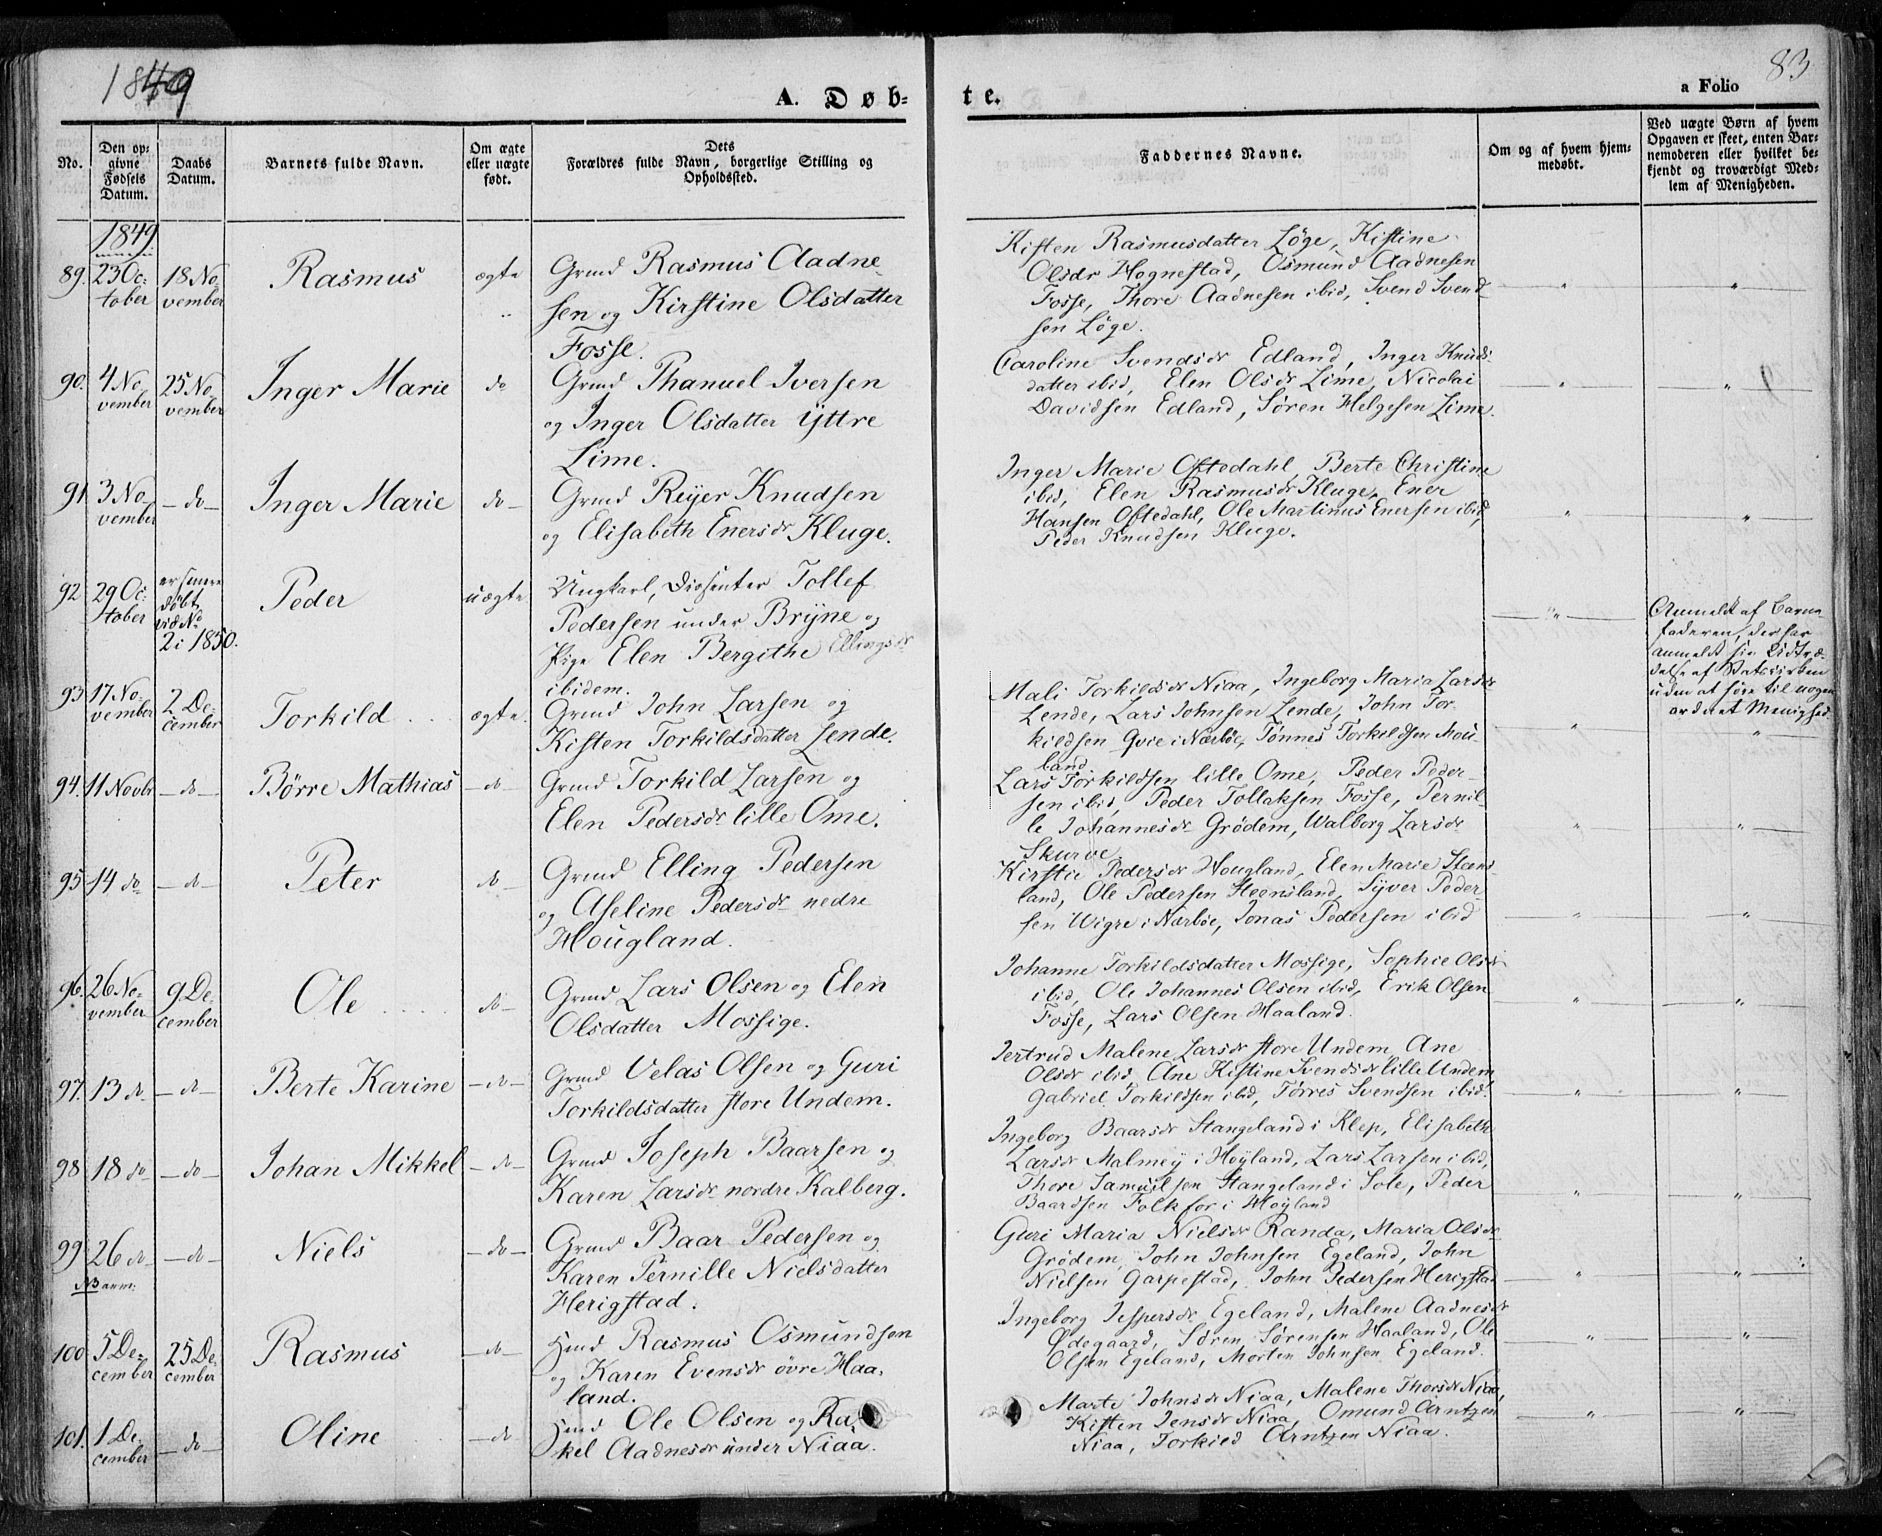 1849
83
A. Døb-
te.
a Folio
No.
Den op-
givne
Fødsels
Datum.
Daabs
Datum.
Barnets fulde Navn.
Om ægte
eller uægte
født.
Dets
Forældres fulde Navn, borgerlige Stilling og
Opholdssted.
Faddernes Navne.
Om og af hvem hjem-
medøbt.
Ved uægte Børn af hvem
Opgaven er skeet, enten Bar-
nemoderen eller hvilket be-
kjendt og troværdigt Med-
lem af Menigheden.
1849.
89. 23 Oc-
tober
18 No-
vember
Rasmus
ægte
Grmd Rasmus Aadne-
sen og Kirstine Olsdatter
Fosse.
Kisten Rasmusdatter Løge, Kistine
Olsdr Hognestad, Osmund Aadnesen
Fosse, Thore Aadnesen ibid, Svend Svend-
sen Løge.
90. 4 No-
vember
25 No-
vember
Inger Marie
do
Grmd Thanuel Iversen
og Inger Olsdatter Yttre
Lime.
Caroline Svendsdr Edland, Inger Knuds-
datter ibid, Elen Olsdr Lime, Nicolai
Davidsen Edland, Søren Helgesen Lime.
91 3 No-
vember
- do -
Inger Marie
do -
Grmd Reyer Knudsen
og Elisabeth Enersdr Kluge.
Inger Marie Oftedahl, Berte Christine
ibid, Elen Rasmusdr Kluge, Ener
Hansen Oftedahl, Ole Martinus Enersen ibid,
Peder Knudsen Kluge.
92 29 Oc-
tober
er senere
døbt
vid No
2 i 1850.
Peder
uægte
Ungkarl, Dissenter Tollef
Pedersen under Bryne og
Pige Elen Bergithe Ellingsdr
ibidem.
Anmeldt af Barne-
faderen, der har
anmeldt sin Udtræ-
delse af Statskirken
uden at høre til nogen
ordnet Menighed
93 17 No-
vember
2 De-
cember
Torkild
ægte.
Grmd John Larsen og
Kisten Torkildsdatter Lende.
Mali Torkildsdr Niaa, Ingeborg Maria Larsdr
Lende, Lars Johnsen Lende, John Tor-
kildsen Qvie i Nærbøe, Tønnes Torkildsen Hou-
land
94. 11 Novbr
- do -
Børre Mathias
- do -
Grmd Torkild Larsen og
Elen Pedersdr lille Ome.
Lars Torkildsen lille Ome, Peder Peder-
sen ibid, Peder Tollaksen Fosse, Pernil-
le Johannesdr Grødem, Walborg Larsdr
Skurve
95 14 do
- do -
Peter
do -
Grmd Elling Pedersen
og Aseline Pedersdr nedre
Hougland.
Kirstie Pedersdr Hougland, Elen Marie
land, Ole Pedersen Heensland, Syver Peder-
sen Wigre i Nærbøe, Jonas Pedersen ibid
96. 26 No-
vember
9 De-
cember
Ole
do -
Grmd Lars Olsen og Elen
Olsdatter Mossige.
Johanne Torkildsdatter Mossige, Sophie Olsdr
ibid, Ole Johannes Olsen ibid, Erik Olsen
Fosse, Lars Olsen Haaland.
97. 13 do
- do -
Berte Karine
- do -
Grmd Velas Olsen og Guri
Torkildsdatter store Undem.
Jertrud Malene Larsdr store Undem, Ane
Olsdr ibid, Ane Kistine Svendsdr lille Undem,
Gabriel Torkildsen ibid, Tørres Svendsen ibid.
98 18 do
- do -
Johan Mikkel
- do -
Grmd Joseph Baarsen og
Karen Larsdr nordre Kalberg.
Ingeborg Baarsdr Stangeland i Klep, Elisabeth
Larsdr Malmey i Høyland, Lars Larsen ibid,
Thore Samuelsen Stangeland i Sole, Peder
Baardsen Folkfor i Høyland
99. 26 do
NB anm:
- do -
Niels
- do -
Grmd Baar Pedersen og
Karen Pernille Nielsdatter
Herigstad.
Guri Maria Nielsdr Randa, Maria Olsdr
Grødem, John Johnsen Egeland, John
Nielsen Garpestad, John Pedersen Herigstad
100 5 De-
cember
25 De-
cember
Rasmus
- do -
Hmd Rasmus Osmundsen
og Karen Evensdr øvre Haa-
land.
Ingeborg Jespersdr Egeland, Malene Aadnesdr
Ødegaard, Søren Sørensen Haaland, Ole
Olsen Egeland, Morten Johnsen Egeland.
101. 1 De-
cember
- do -
Oline
- do
Hmd Ole Olsen og Ra-
kel Aadnesdr under Niaa.
Marte Johnsdr Niaa, Malene Thorsdr Niaa,
Kisten Jensdr Niaa, Omund Arntzen
Niaa, Torkied Arntzen Niaa.